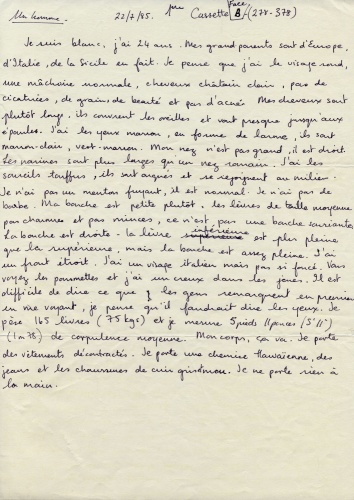 Un homme 22/7/85. 1ère Cassette Face B, (278-378)
Je suis blanc, j'ai 24 ans. Mes grand parents sont d'Europe,
d'Italie, de la Sicile en fait. Je pense que j'ai le visage rond,
une mâchoire normale, cheveux châtain clair, pas de
cicatrices, de grains de beauté et pas d'acnés. Mes cheveux sont
plutôt longs, ils couvrent les oreilles et vont presque jusqu'aux
épaules. J'ai les yeux marron, en forme de larme, ils sont
marron-clair, vert-marron. Mon nez n'est pas grand, il est droit.
Les narines sont plus larges qu'un nez romain. J'ai les
sourcils touffus, ils sont arqués et se rejoignent au milieu.
Je n'ai pas un menton fuyant, il est normal. Je n'ai pas de
barbe. Ma bouche est petite plutôt. les lèvres de taille moyenne
pas charnues et pas minces, ce n'est, pas une bouche souriante.
La bouche est droite. la lèvre supérieure inférieure est plus pleine
que la supérieure, mais la bouche est assez pleine. J'ai
un front étroit. J'ai un visage italien mais pas si foncé. Vous
voyez les pommettes et j'ai un creux dans les joues. Il est
difficile de dire ce que les gens remarquent en premier
en me voyant, je pense qu'il faudrait dire les yeux. Je
pèse 165 livres (75 kgs) et je mesure 5 pieds 11 pouces (5'11")
(1m78) de corpulence moyenne. Mon corps, ça va. Je porte
des vêtements décontractés. Je porte une chemise Hawaïenne, des
jeans et les chaussures de cuir gris Je ne porte rien à
la main.